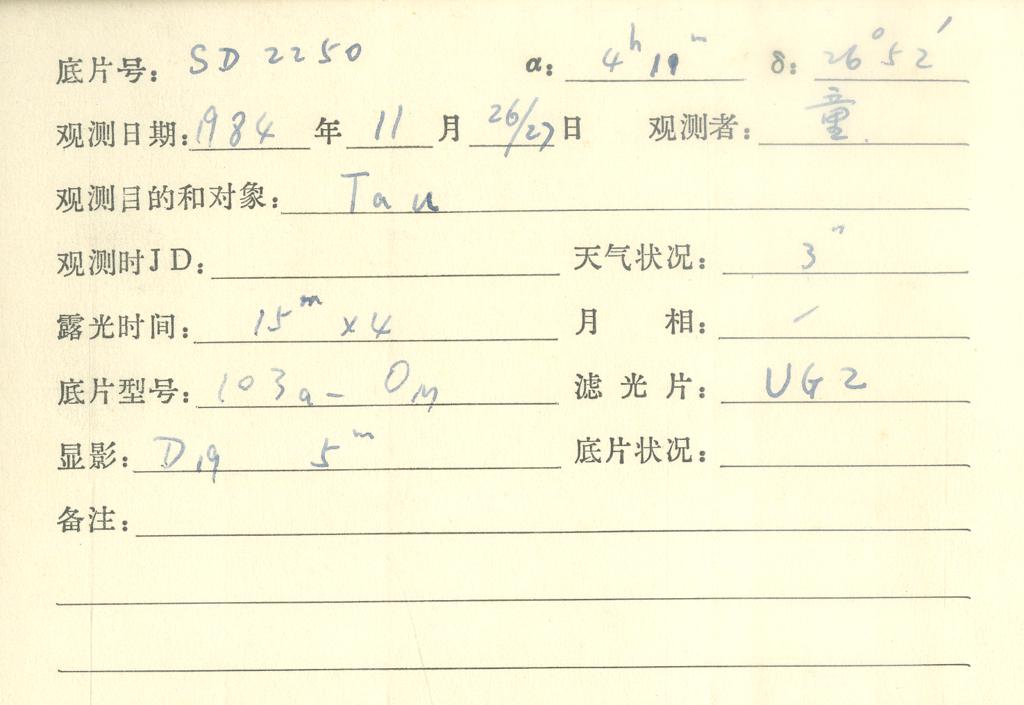 底片号: SD 2250 α: 4ʰ 19ᵐ δ: 26° 52′
观测日期: 1984 年 11 月 26/27 日 观测者: 童
观测目的和对象: Tau
观测时JD: 天气状况: 3ᵐ
露光时间: 15ᵐ ×4 月 相: /
底片型号: 103a-OM 滤光片: UG2
显影: D19 5ᵐ 底片状况:
备注: